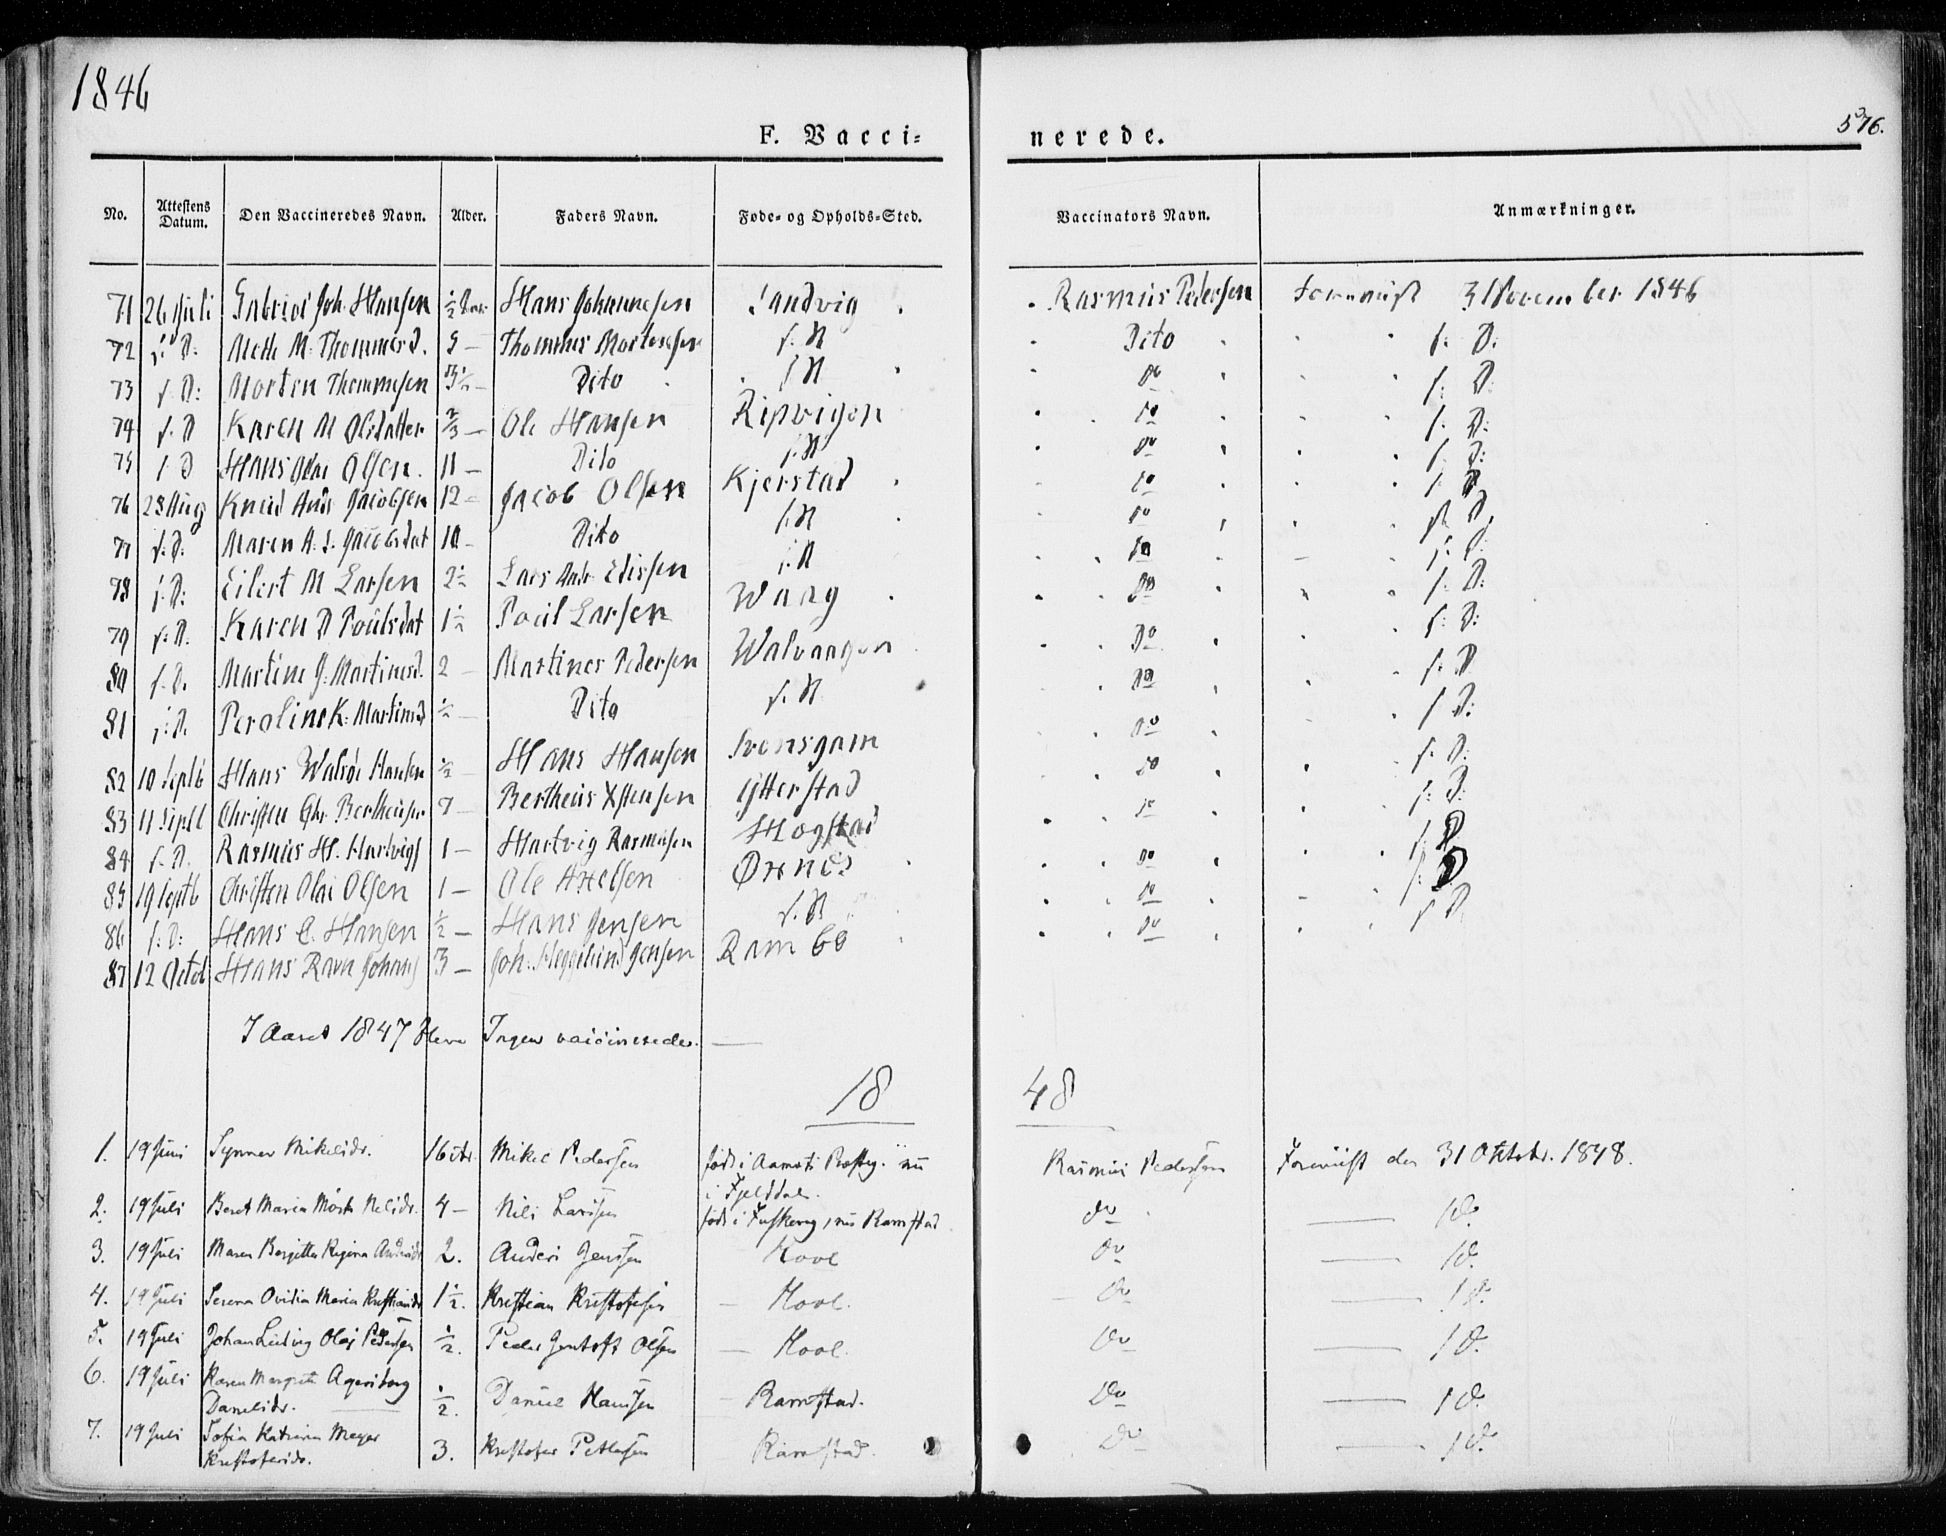 1846
576.
F. Vacci= nerede.
No. Attestens Datum. Den Vaccineredes Navn. Alder. Faders Navn. Føde- og Opholds-Sted. Vaccinators Navn. Anmærkninger.
71 26 Juli Gabriel Joh. Hansen ½ Hans Johannesen Sandvig Rasmus Pedersen 3 November 1846
72 s: D: Meth M. Thommesd. 5 — Thommes Mortensen s. St Dito s: D:
73 s: D: Morten Thommesen 3½ — Dito s. St do s: D:
74 s. D Karen M Olsdatter — Ole Hansen Ripvigen do s: D:
75 s. D Hans Olai Olsen. 11 — Dito s. St do s: D:
76 28 Aug Knud And: Jacobsen 12 — Jacob Olsen Kjerstad do s: D
77 s: D: Maren A. S. Jacobsdat 10 — Dito s. St do s: D.
78 s: D: Eilert M Larsen 2½ Lars And: s. St do s: D:
79 s: D. Karen D Poulsdat 1½ Poul Larsen Waag do s: D:
80 s. D. Martine J. Martinusd. 2 — Martines Pedersen Walvaagen do s: D:
81 s: D. Peroline K. Martinusd ½ — Dito s. St do s: D
82 10 Septb Hans Walsøe Hansen ½ — Hans Hansen do s: D:
83 11 Septb Christen Chr. Bertheusen 7 — Bertheus Xstensen Ytterstad do s: D:
84 s. D. Rasmus H. Hartvigs 1 — Hartvig Rasmusen Hogstad do s: D:
85 19 Septb Christen Olai Olsen 1 — Ole Axelsen Ørnes do s: D
86 s: D: Hans C. Hansen ½ — Hans Jensen s. St do s: D
87 12 Octob Hans Ravn Johans 3 — Joh. Heggelund Jensen Rambo do s: D.
I Aaret 1847 Ingen vaccinerede. —
18 48
1. 19 Juni Synnev Mikelsdr. 16 Mikel Pedersen født i Aamots Præstg. nu
i Fjelddal. Rasmus Pedersen Foreviist den 31 Oktobr. 1848.
2. 19 Juli Beret Maria Nelsdr. 4 — Nils Larssen født i Fuskevg, nu Ramstad do — D.
3. 19 Juli Maren Bergitte Regina Andersdr 2. Anders Jenssen Hool do — D.
4. 19 Juli Serena Ovidia Maria Kristiansdr 1½. Kristian Kristofersen — Hool. do — D.
5. 19 Juli Johan Ludvig Olai Pedersen ½. Peder Jentoft Olsen — Hool. do — D.
6. 19 Juli Karen Margrete Agersborg
Danielsdr. ½. Daniel Hanssen — Ramstad. do — D.
7. 19 Juli Sofia Katrina Meyer
Kristofersdr. 3. Kristofer Petersen Ramstad. do — D.